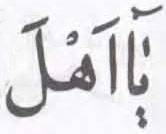 يَٓا اَهْلَ